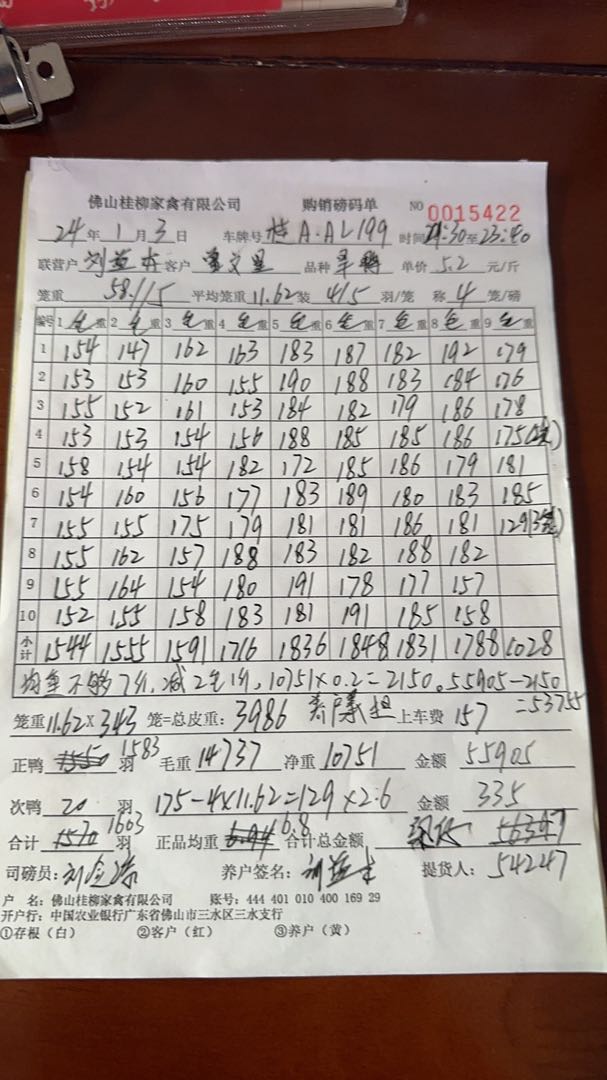 佛山桂柳家禽有限公司 购销磅码单 NO 0015422
24年1月3日 车牌号 桂A·AL199 时间 21:30至23:40
联营户 客户 品种 旱鸭 单价 5.2 元/斤
笼重 58.1/5 平均笼重 11.62 装 4/5 羽/笼 称 4 笼/磅
编号 1 毛重 2 毛重 3 毛重 4 毛重 5 毛重 6 毛重 7 毛重 8 毛重 9 毛重
1 154 147 162 163 183 187 182 192 179
2 153 153 160 155 190 188 183 184 176
3 155 152 161 153 184 182 179 186 178
4 153 153 154 156 188 185 185 186 175
5 158 154 154 182 172 185 186 179 181
6 154 160 156 177 183 189 180 183 185
7 155 155 175 179 181 181 186 181 129(3笼)
8 155 162 157 188 183 182 188 182
9 155 164 154 180 191 178 177 157
10 152 155 158 183 181 191 185 158
小计 1544 1555 1591 1716 1836 1848 1831 1788 1028
均重不够7斤,减2毛1斤,10751×0.2=2150。55905-2150
=53755
笼重 11.62×343 笼=总皮重: 3986 养户承担 上车费 157
正鸭 1550 1583 羽 毛重 14737 净重 10751 金额 55905
次鸭 20 羽 175-4×11.62=129×2.6 金额 335
合计 1570 1603 羽 正品均重 6.94 6.8 合计总金额 56397
司磅员: 养户签名: 提货人: 54247
户 名: 佛山桂柳家禽有限公司 账号: 444 401 010 400 169 29
开户行: 中国农业银行广东省佛山市三水区三水支行
①存根（白） ②客户（红） ③养户（黄）